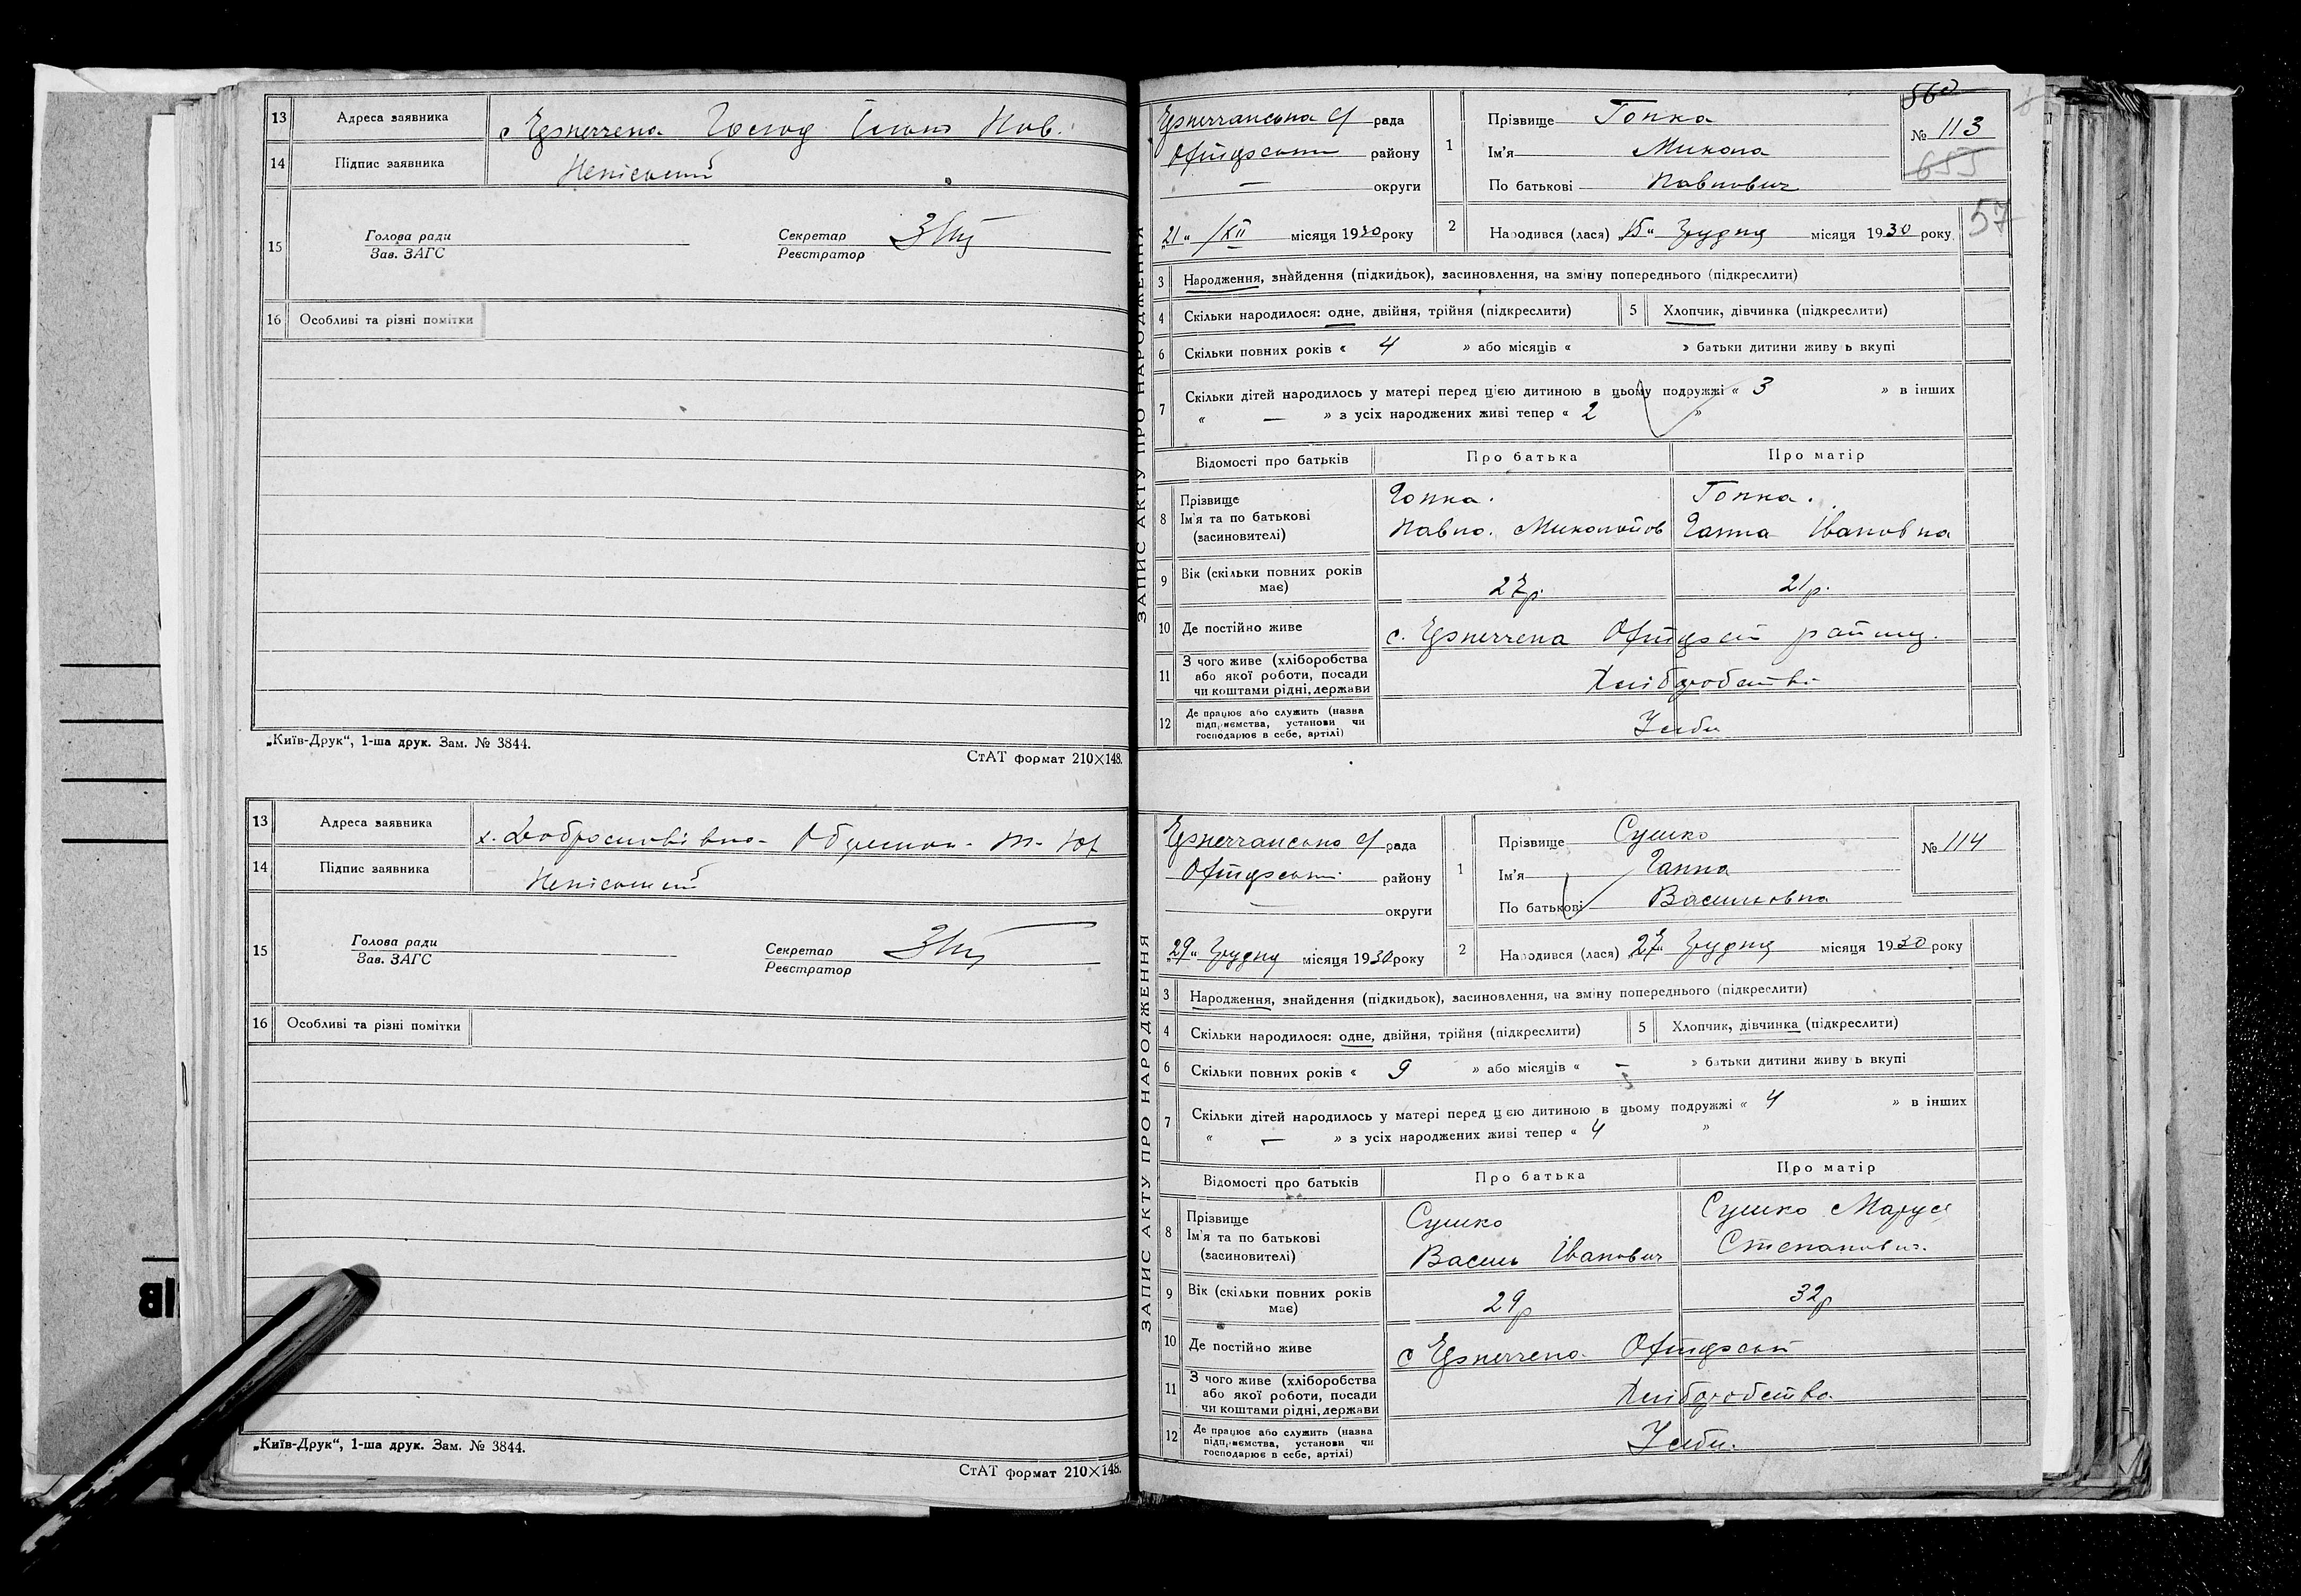 13 Адреса заявника
14 Підпис заявника Неписьмений
15 Голова ради
Зав. ЗАГС
Секретар
Реєстратор
16 Особливі та різні помітки
„Київ-Друк“, 1-ша друк. Зам. № 3844.
СтАТ формат 210×148.
13 Адреса заявника
14 Підпис заявника Неписьмений
15 Голова ради
Зав. ЗАГС
Секретар
Реєстратор
16 Особливі та різні помітки
„Київ-Друк“, 1-ша друк. Зам. № 3844.
СтАТ формат 210×148.
ЗАПИС АКТУ ПРО НАРОДЖЕННЯ
560
№ 113
655
57
рада
району
— округи
„21“ /XII місяця 1930 року
1 Прізвище Гопка
Ім'я Микола
По батькові Павлович
2 Народився (лася) „15“ Грудня місяця 1930 року
3 Народження, знайдення (підкидьок), засиновлення, на зміну попереднього (підкреслити)
4 Скільки народилося: одне, двійня, трійня (підкреслити) 5 Хлопчик, дівчинка (підкреслити)
6 Скільки повних років « 4 » або місяців « » батьки дитини живуть вкупі
7 Скільки дітей народилось у матері перед цією дитиною в цьому подружжі « 3 » в інших
« — » з усіх народжених живі тепер « 2 »
Відомості про батьків Про батька Про матір
8 Прізвище Гопка. Гопка.
Ім'я та по батькові Павло. Миколайов Ганна Івановна
(засиновителі)
9 Вік (скільки повних років має) 27р. 21р.
10 Де постійно живе с.
11 З чого живе (хліборобства
або якої роботи, посади Хліборобство
чи коштами рідні, держави
12 Де працює або служить (назва
підприємства, установи чи У себи
господарює в себе, артілі)
ЗАПИС АКТУ ПРО НАРОДЖЕННЯ
№ 114
рада
району
— округи
„29“ Грудня місяця 1930 року
1 Прізвище Сушко
Ім'я Ганна
По батькові Васильовна
2 Народився (лася) „27“ Грудня місяця 1930 року
3 Народження, знайдення (підкидьок), засиновлення, на зміну попереднього (підкреслити)
4 Скільки народилося: одне, двійня, трійня (підкреслити) 5 Хлопчик, дівчинка (підкреслити)
6 Скільки повних років « 9 » або місяців « — » батьки дитини живуть вкупі
7 Скільки дітей народилось у матері перед цією дитиною в цьому подружжі « 4 » в інших
« — » з усіх народжених живі тепер « 4 »
Відомості про батьків Про батька Про матір
8 Прізвище Сушко Сушко Маруся
Ім'я та по батькові Василь Іванович Степанович.
(засиновителі)
9 Вік (скільки повних років має) 29р 32р
10 Де постійно живе с
11 З чого живе (хліборобства
або якої роботи, посади Хліборобство
чи коштами рідні, держави
12 Де працює або служить (назва
підприємства, установи чи У себи.
господарює в себе, артілі)